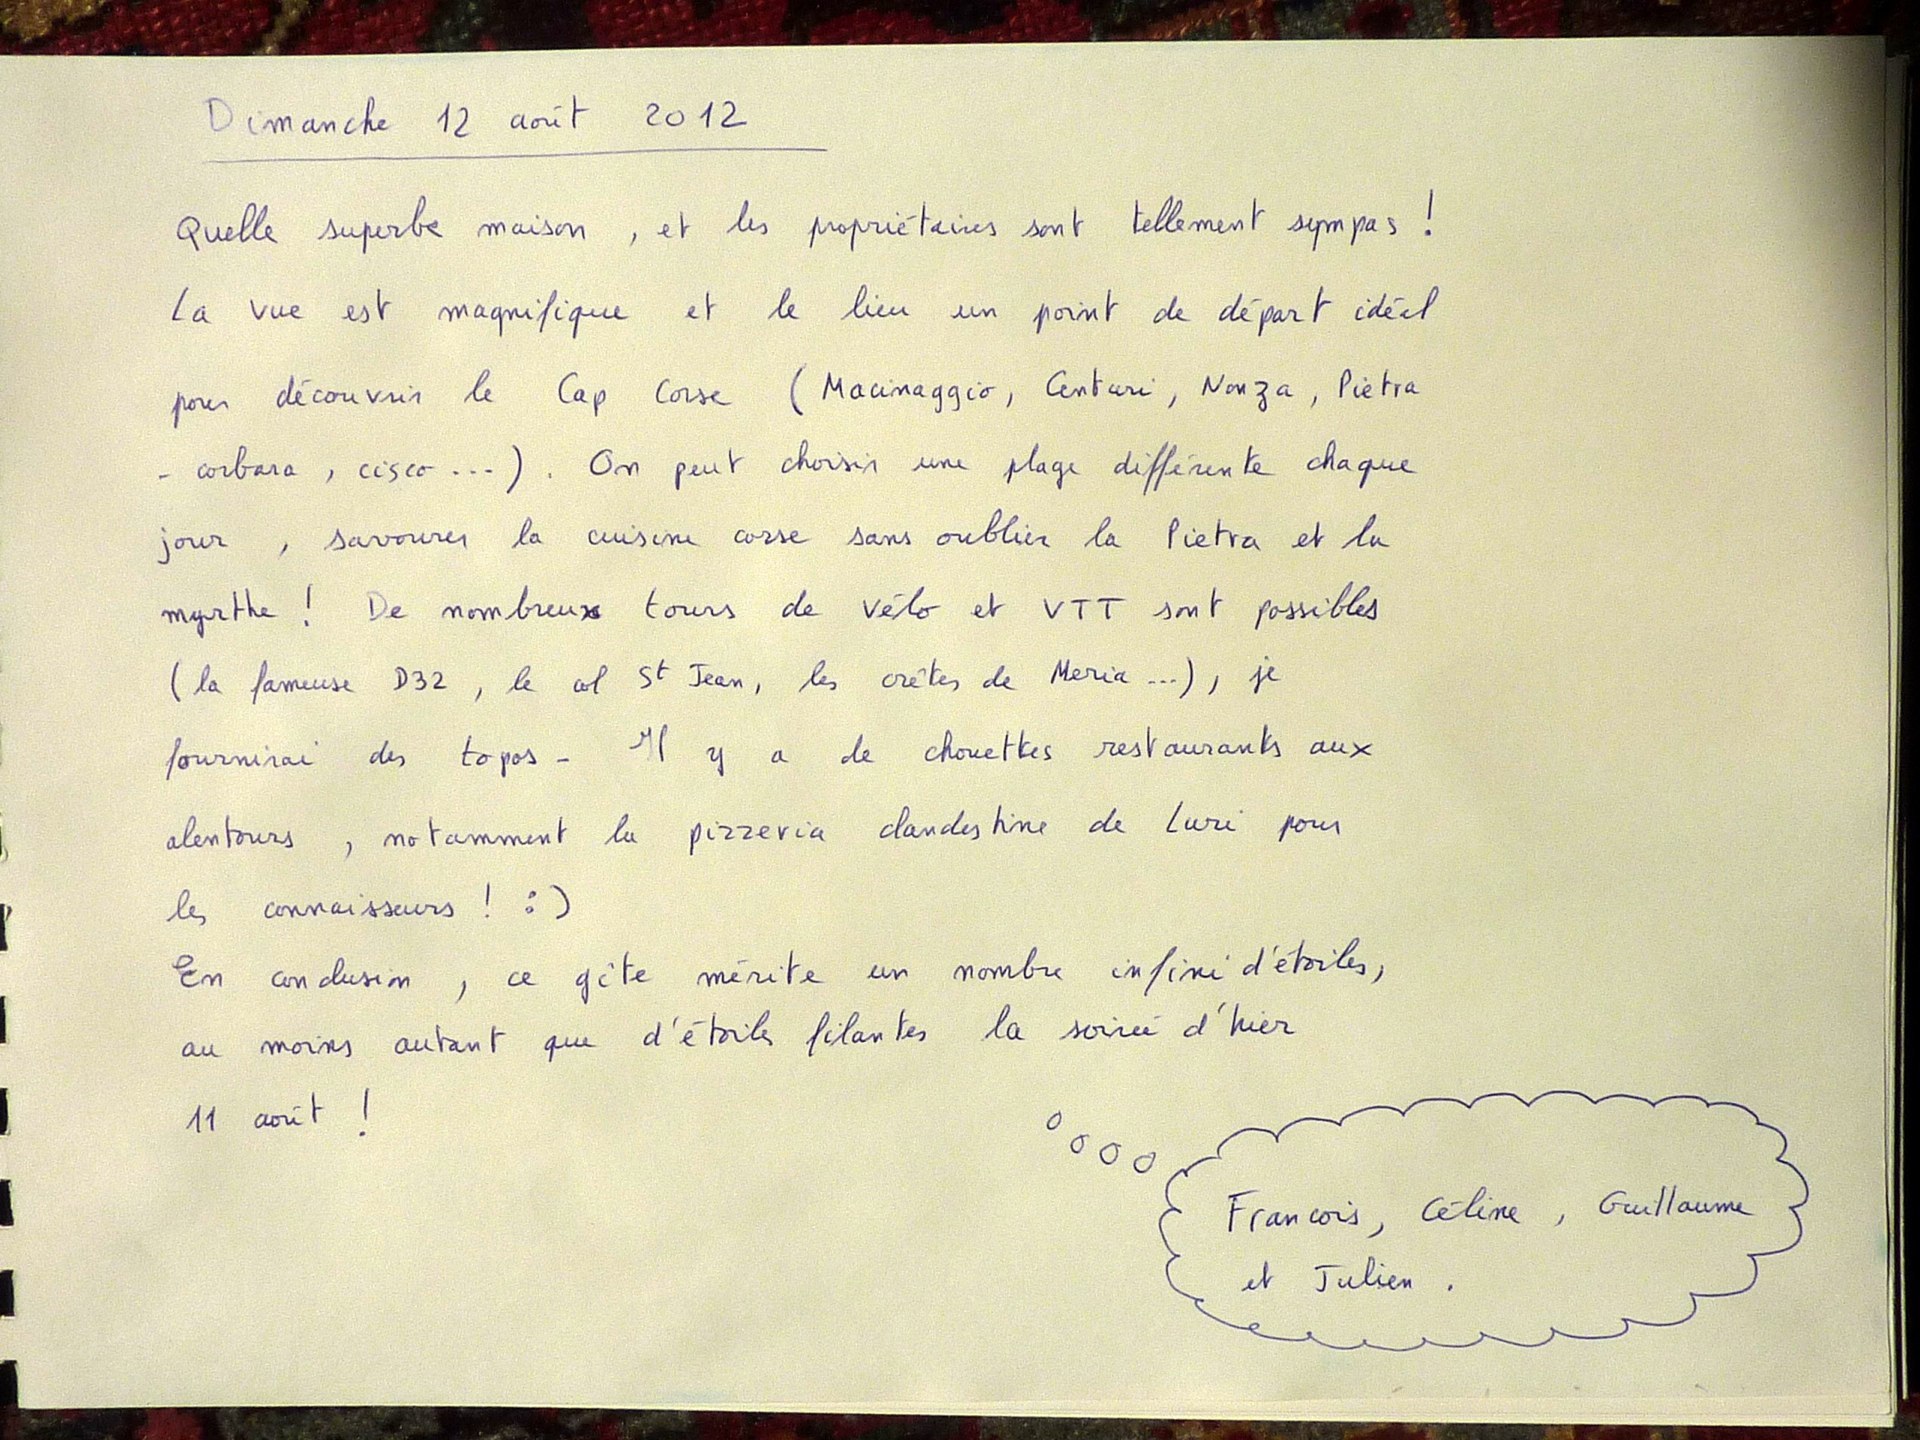 Dimanche 12 août 2012
Quelle superbe maison, et les propriétaires sont tellement sympas !
La vue est magnifique et le lieu un point de départ idéal
pour découvrir le Cap Corse (Macinaggio, Centuri, Nonza, Piétra
- corbara, cisco ...). On peut choisir une plage différente chaque
jour, savourer la cuisine corse sans oublier la Pietra et la
myrthe ! De nombreux tours de vélo et VTT sont possibles
(la fameuse D32, le col St Jean, les crêtes de Meria ...), je
fournirai des topos - Il y a de chouettes restaurants aux
alentours, notamment la pizzeria clandestine de Luri pour
les connaisseurs ! :)
En conclusion, ce gîte mérite un nombre infini d'étoiles,
au moins autant que d'étoiles filantes la soirée d'hier
11 août !
Francois, Céline, Guillaume
et Julien.